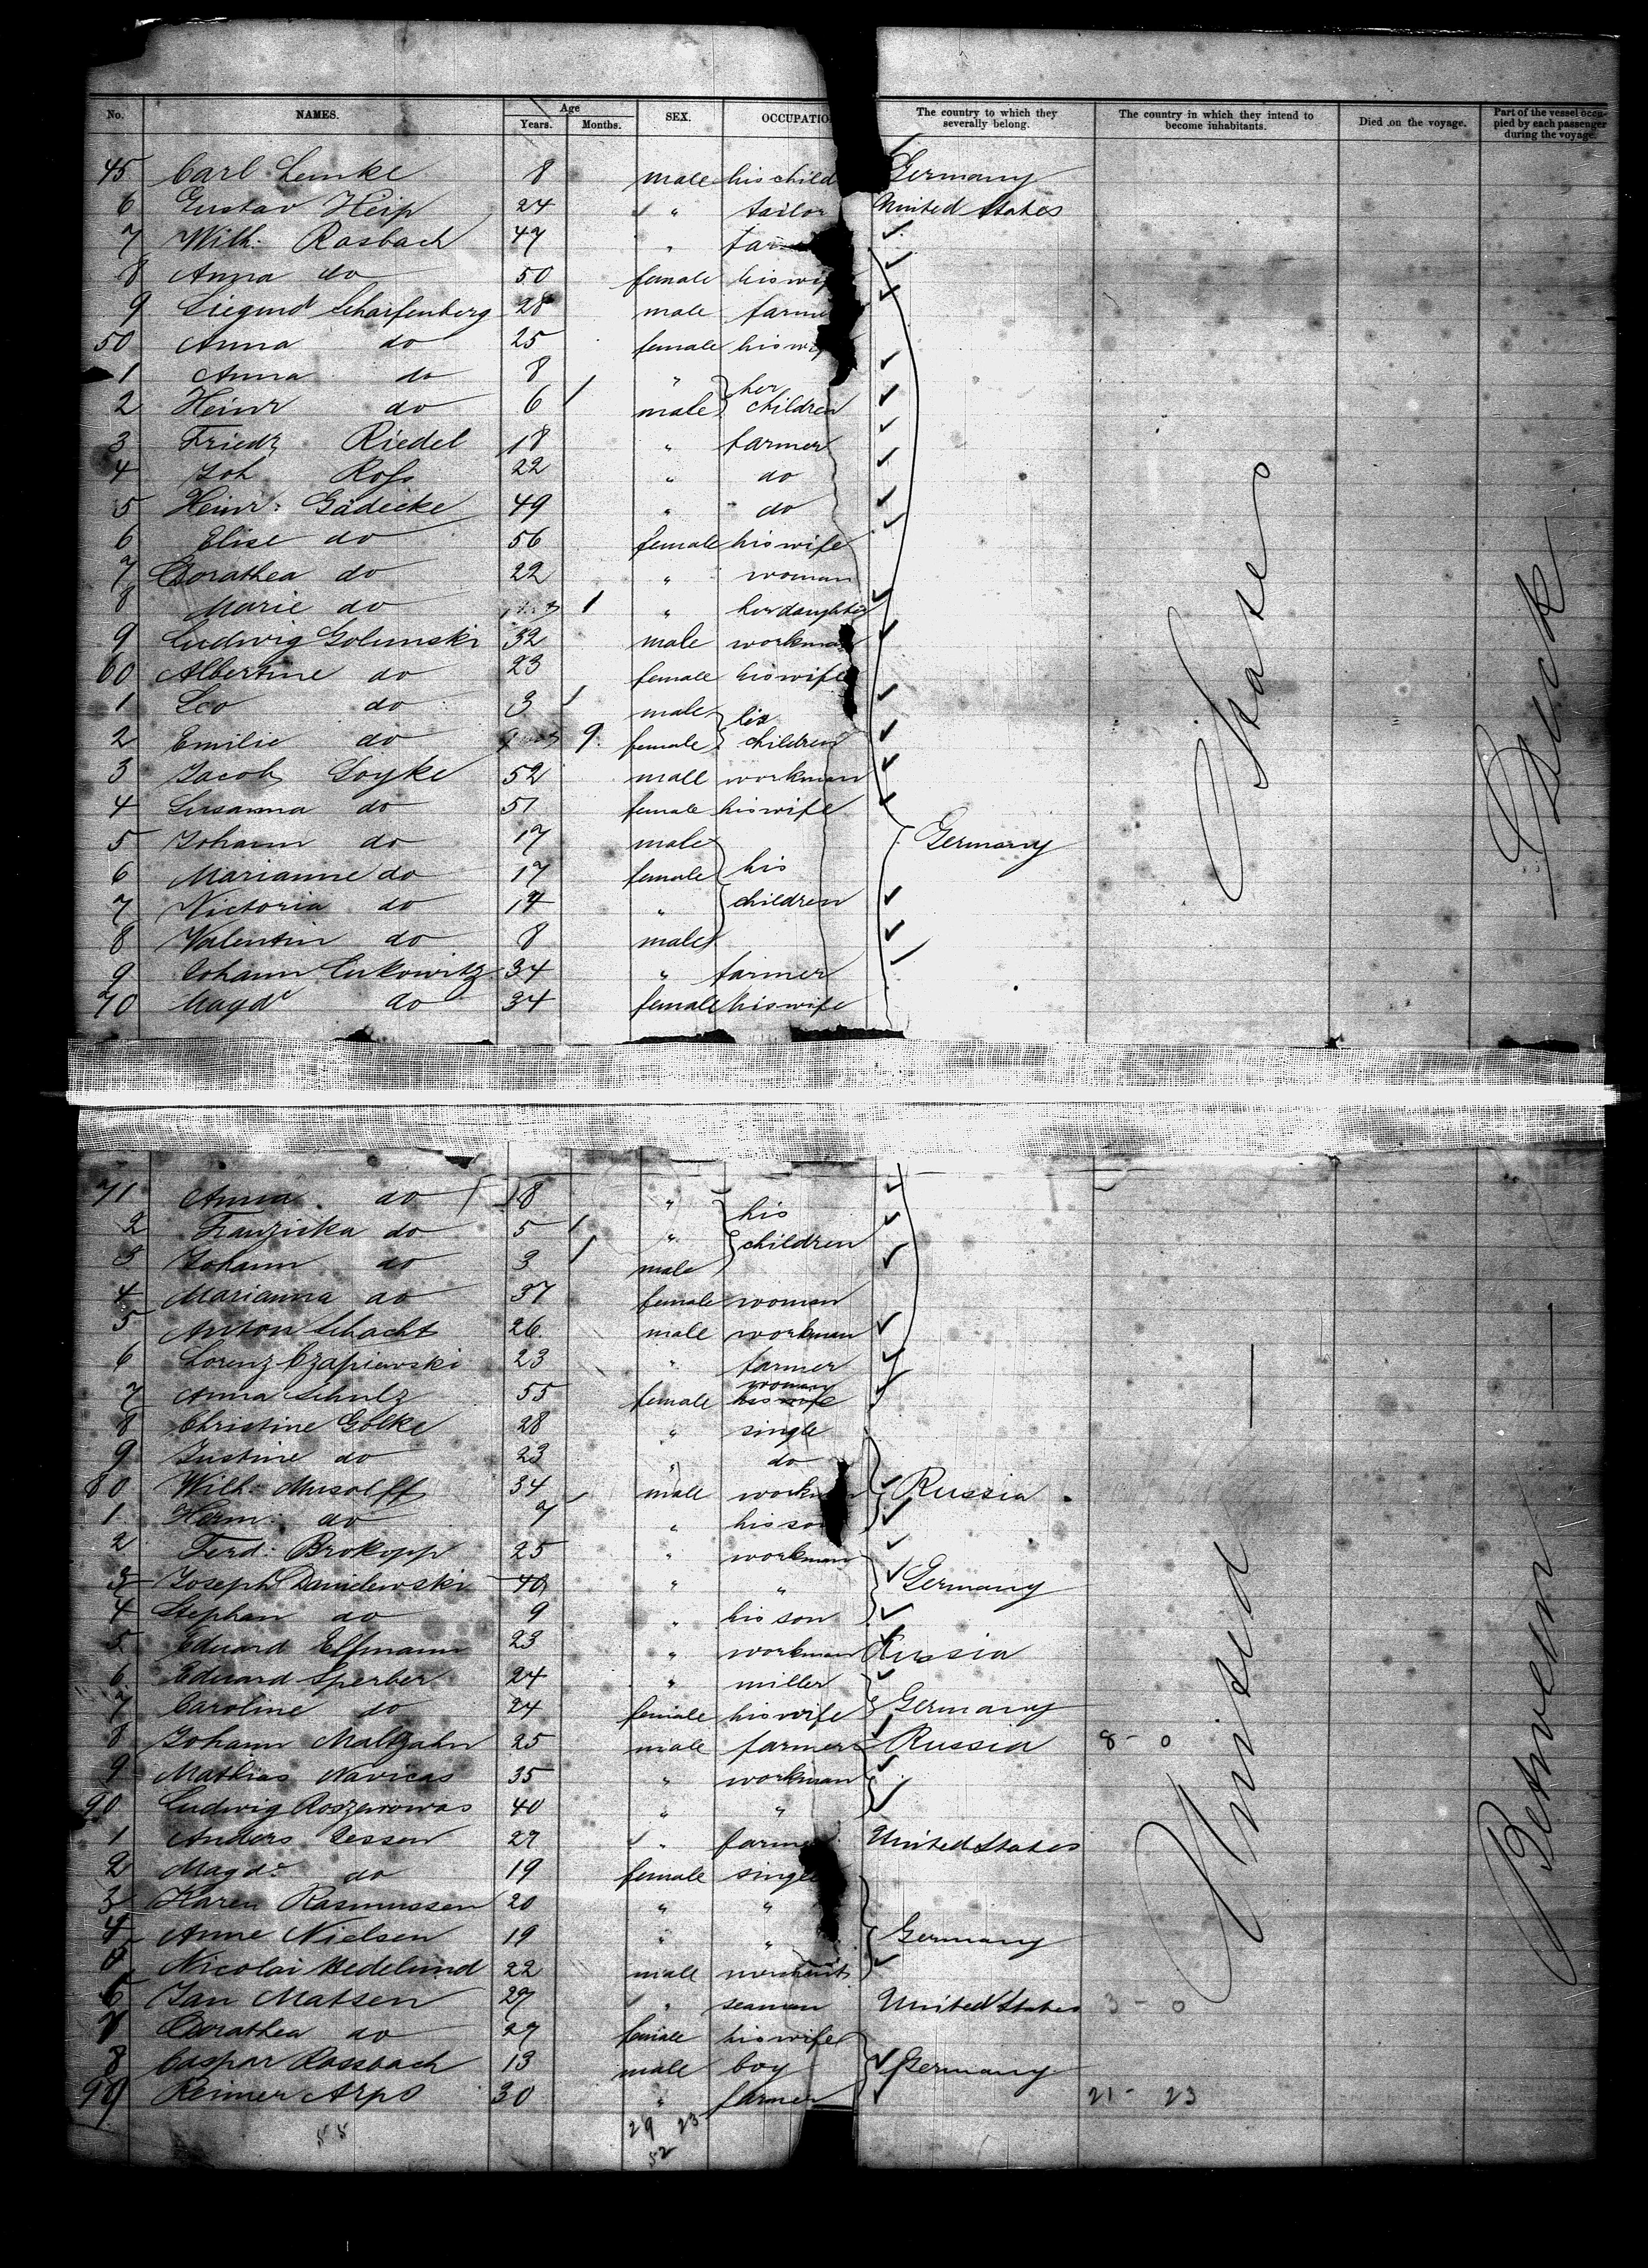 No. NAMES. Age Years. Months. SEX. OCCUPATIO The country to which they severally belong. The country in which they intend to become inhabitants. Died on the voyage. Part of the vessel occupied by each passenger during the voyage.
45 Carl Lemke 8 male his child Germany
6 Gustav Heip 24 " tailor United States
7 Wilh. Rasbach 47 "
8 Anna do 50 female his wif
9 Siegmd Scharfenberg 28 male farme
50 Anna do 25 female his wif
1 Anna do 8 " her
2 Heinr do 6 male children
3 Friedr Riedel 18 " farmer
4 Joh Ross 22 " do
5 Heinr. Gädecke 49 " do
6 Elise do 56 female his wife
7 Dorathea do 22 " woman
8 Marie do 1 " her daughter
9 Ludwig Golunski 32 male workman
60 Albertine do 23 female his wife
1 Leo do 3 male his
2 Emilie do 9 female children
3 Jacob Goyke 52 male workman
4 Susanna do 51 female his wife
5 Johann do 17 male Germany
6 Marianne do 17 female his
7 Victoria do 14 " children
8 Valentin do 8 male
9 Johann Cukowitz 34 " farmer
70 Magd. do 34 female his wife
71 Anna do 8 " his
2 Franziska do 5 " children
3 Johann do 3 male
4 Marianna do 37 female woman
5 Anton Schacht 26 male workman
6 Lorenz Czapiewski 23 " farmer
7 Anna Schulz 55 female his wife woman
8 Christine Gölke 28 " single
9 Justine do 23 " do
80 Wilh. Musolff 34 male workman Russia
1 Herm. do 7 " his son
2 Ferd. Brokopp 25 " workman
3 Joseph Danielewski 40 " " Germany
4 Stephan do 9 " his son
5 Eduard Elfmann 23 " workman Russia
6 Eduard Sperber 24 " miller
7 Caroline do 24 female his wife Germany
8 Johann Maltzahn 25 male farmer Russia 8 - 0
9 Mathias Navicas 35 " workman
90 Ludwig Roszewowas 40 " "
1 Anders Jessen 27 " farmer United States
2 Magd. do 19 female single
3 Karen Rasmussen 20 " "
4 Anne Nielsen 19 " " Germany
5 Nicolai Hedelund 22 male
6 Jan Matsen 27 " seaman United States 3 - 0
7 Dorathea do 27 female his wife
8 Caspar Rassbach 13 male boy Germany
99 Reimer Arps 30 " farmer 21 - 23
55 29 23
52
United States
Between Deck